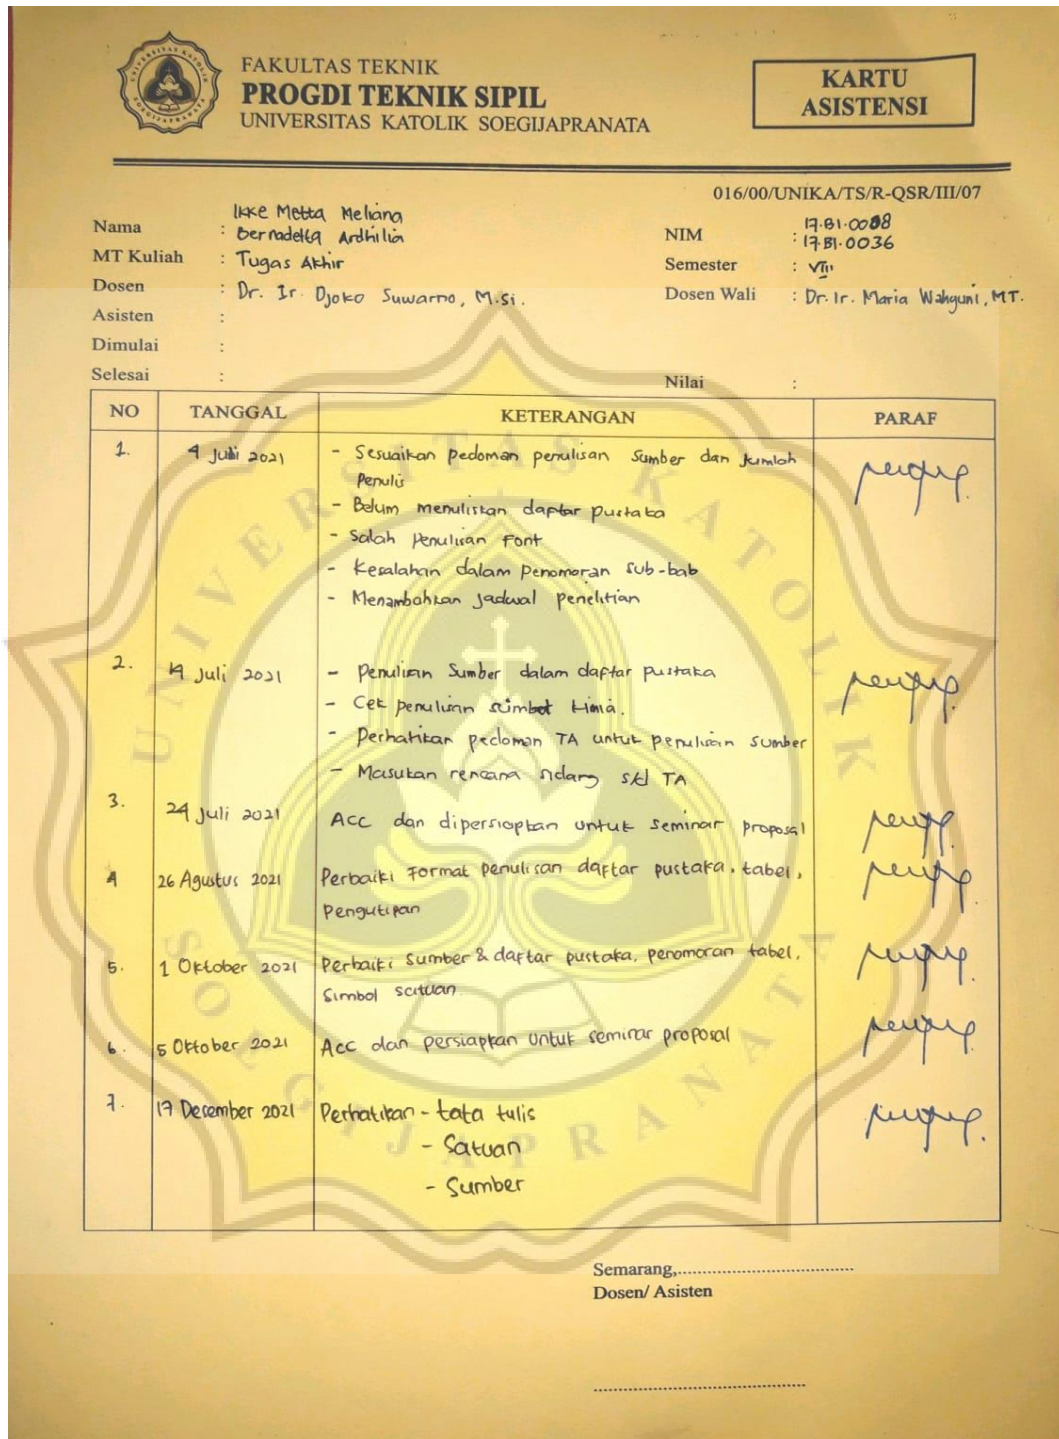 FAKULTAS TEKNIK
PROGDI TEKNIK SIPIL
UNIVERSITAS KATOLIK SOEGIJAPRANATA
KARTU
ASISTENSI
016/00/UNIKA/TS/R-QSR/III/07
Nama : Ikke Metta Meliana
Bernadetta Ardhilia
NIM : 17.B1.0088
17.B1.0036
MT Kuliah : Tugas Akhir
Semester : VIII
Dosen : Dr. Ir. Djoko Suwarno, M.Si.
Dosen Wali : Dr. Ir. Maria Wahyuni, MT.
Asisten :
Dimulai :
Selesai :
Nilai :
NO TANGGAL KETERANGAN PARAF
1. 9 Juli 2021 - Sesuaikan pedoman penulisan sumber dan jumlah
Penulis
- Belum menuliskan daftar pustaka
- Salah Penulisan Font
- Kesalahan dalam Penomoran Sub-bab
- Menambahkan jadwal penelitian
2. 19 Juli 2021 - Penulisan Sumber dalam daftar pustaka
- Cek penulisan simbol kimia.
- Perhatikan pedoman TA untuk penulisan sumber
- Masukan rencana sidang TA
3. 24 Juli 2021 Acc dan dipersiapkan untuk seminar proposal
4 26 Agustus 2021 Perbaiki Format penulisan daftar pustaka, tabel,
Pengutipan
5. 1 Oktober 2021 Perbaiki Sumber & daftar pustaka, penomoran tabel,
Simbol satuan
6. 5 Oktober 2021 Acc dan persiapkan untuk seminar proposal
7. 17 December 2021 Perhatikan - tata tulis
- Satuan
- Sumber
Semarang,....................................
Dosen/ Asisten
UNIVERSITAS KATOLIK
SOEGIJAPRANATA